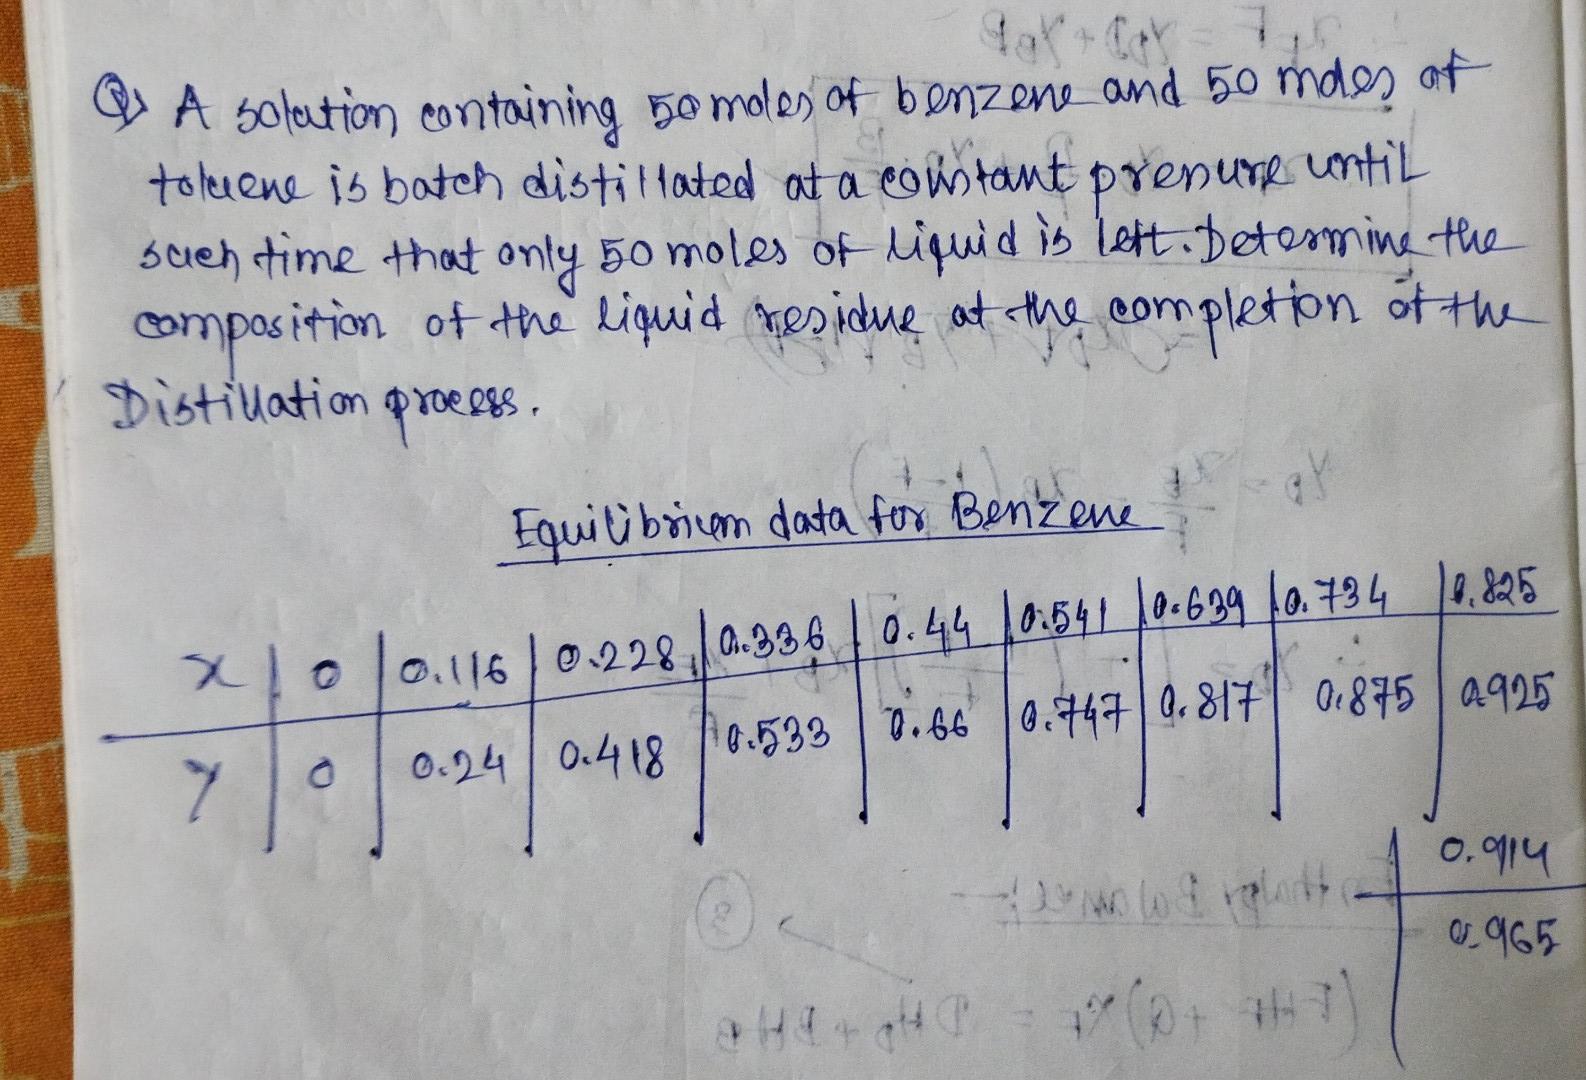 Q) A solution containing 50 moles of benzene and 50 moles of
toluene is batch distillated at a constant pressure until
such time that only 50 moles of liquid is left. Determine the
composition of the liquid residue at the completion of the
Distillation process.
Equilibrium data for Benzene
x 0 0.116 0.228 0.336 0.44 0.541 0.639 0.734 0.825
y 0 0.24 0.418 0.533 0.66 0.747 0.817 0.875 0.925
0.914
0.965